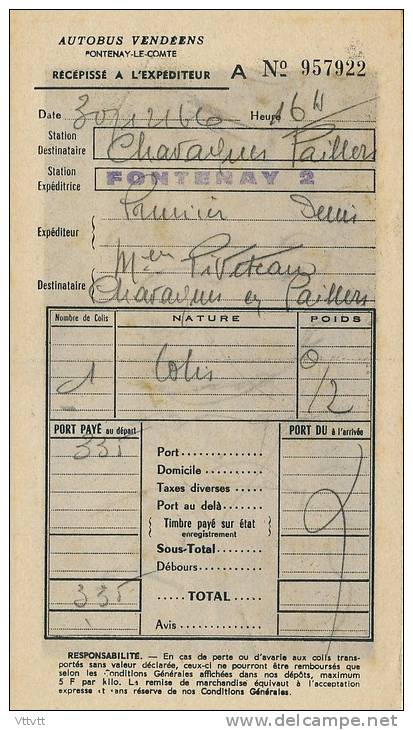 AUTOBUS VENDÉENS
FONTENAY-LE-COMTE
RÉCÉPISSÉ A L'EXPÉDITEUR A Nº 957922
Date 30/12/66 Heure 16H
Station Destinataire Chavagnes Paillers
Station Expéditrice FONTENAY 2
Expéditeur Denis
Destinataire Piveteau
Chavagnes en Paillers
Nombre de Colis NATURE POIDS
1 Colis /2
PORT PAYÉ au départ PORT DU à l'arrivée
335 Port
Domicile
Taxes diverses
Port au delà
Timbre payé sur état
enregistrement
Sous-Total
Débours
335 TOTAL
Avis
RESPONSABILITÉ. — En cas de perte ou d'avarie aux colis trans-
portés sans valeur déclarée, ceux-ci ne pourront être remboursés que
selon les Conditions Générales affichées dans nos dépôts, maximum
5 F par kilo. La remise de marchandise équivaut à l'acceptation
expresse et sans réserve de nos Conditions Générales.
Vttvtt
www.delcampe.net